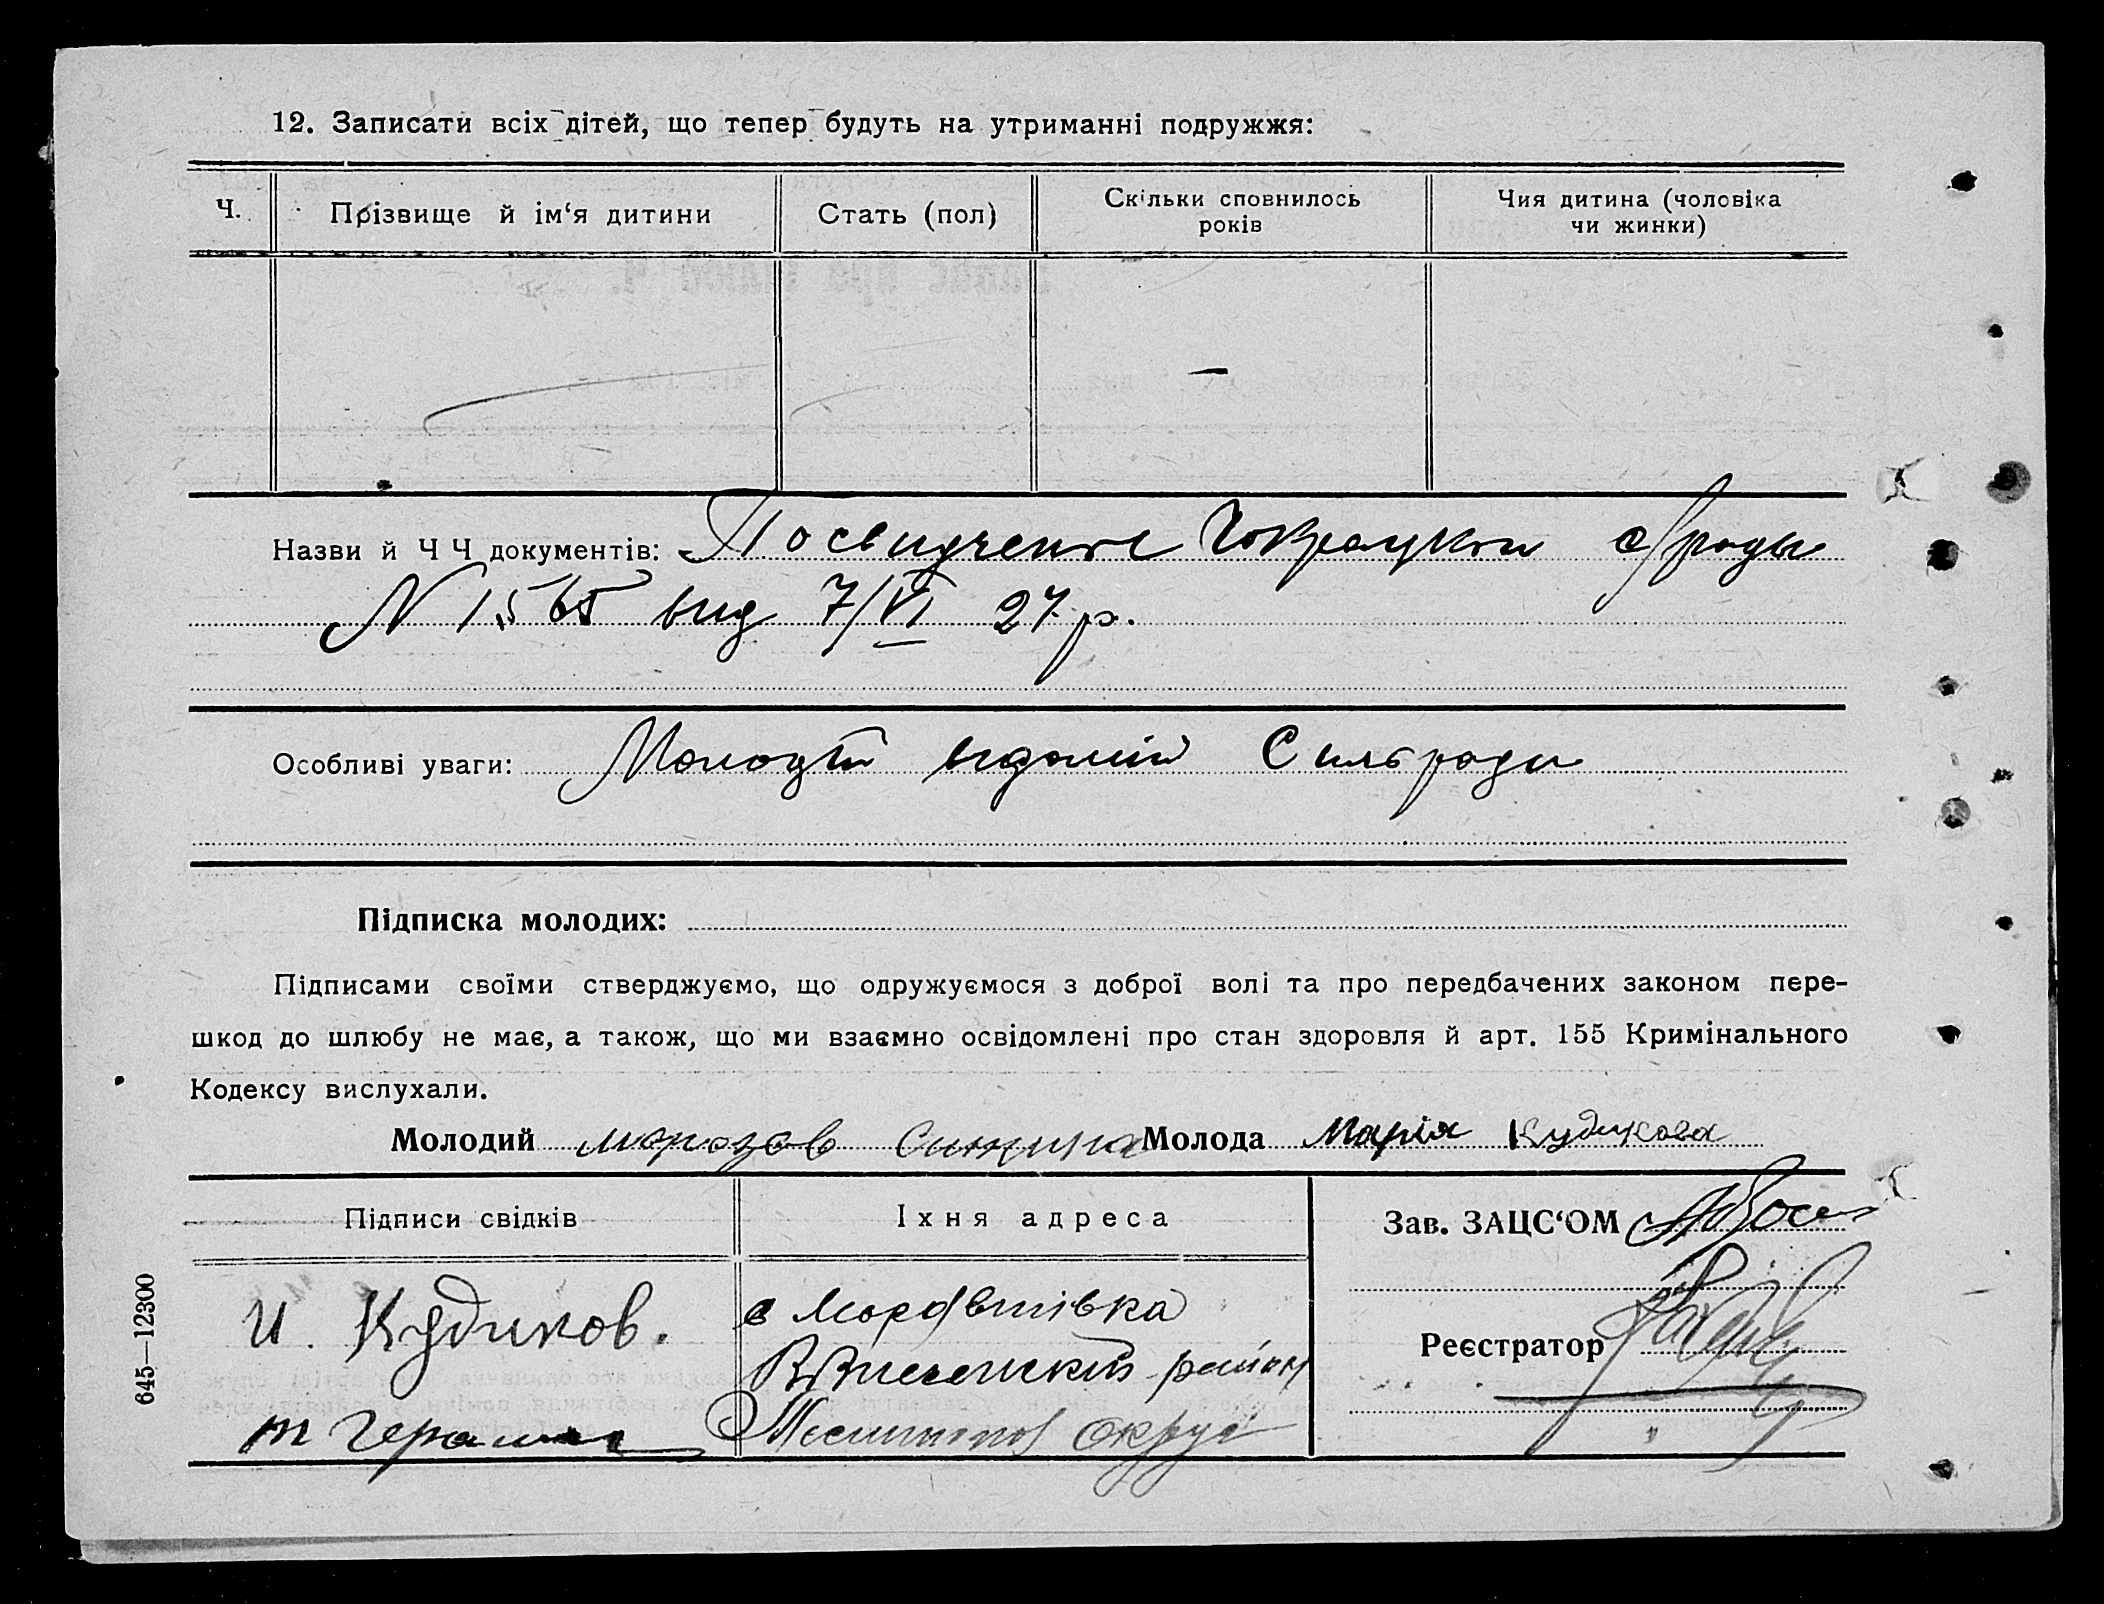 12. Записати всіх дітей, що тепер будуть на утриманні подружжя:
Ч. Прізвище й ім‘я дитини Стать (пол) Скільки сповнилось років Чия дитина (чоловіка чи жинки)
—
Назви й Ч Ч документів: Посвидчення с/ради
N 1565 вид 7/VI 27 р.
Особливі уваги: Молодти відомій Сильради
Підписка молодих:
Підписами своїми стверджуємо, що одружуємося з доброї волі та про передбачених законом пере-
шкод до шлюбу не має, а також, що ми взаємно освідомлені про стан здоровля й арт. 155 Кримінального
Кодексу вислухали.
Молодий Морозов Молода Марія Кудикова
Підписи свідків Їхня адреса Зав. ЗАЦС‘ОМ
И. Кудиков. с
район Реєстратор
округ
645—12300